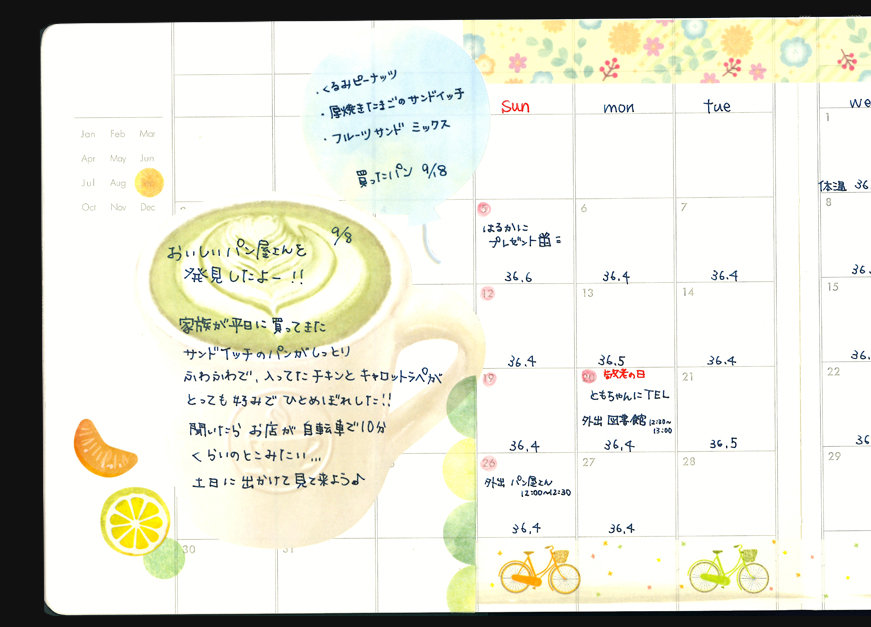 ・くるみピーナッツ
・厚焼きたまごのサンドイッチ
・フルーツサンド ミックス
買ったパン 9/8
Jan Feb Mar
Apr May Jun
Jul Aug
Oct Nov Dec
9/8
おいしいパン屋さんを
発見したよー!!
家族が平日に買ってきた
サンドイッチのパンがしっとり
ふわふわで、入ってたチキンとキャロットラペが
とっても好みでひとめぼれした!!
聞いたら お店が自転車で10分
くらいのとこみたい…
土日に出かけて見て来よう♪
30 31
Sun mon tue We
1
体温 36.
5 6 7 8
はるかに
プレゼント
36.6 36.4 36.4 36.
12 13 14 15
36.4 36.5 36.4 36.
19 20 敬老の日 21 22
ともちゃんにTEL
外出 図書館 12:30~
13:00
36.4 36.4 36.5 36.
26 27 28 29
外出 パン屋さん
12:00~12:30
36.4 36.4